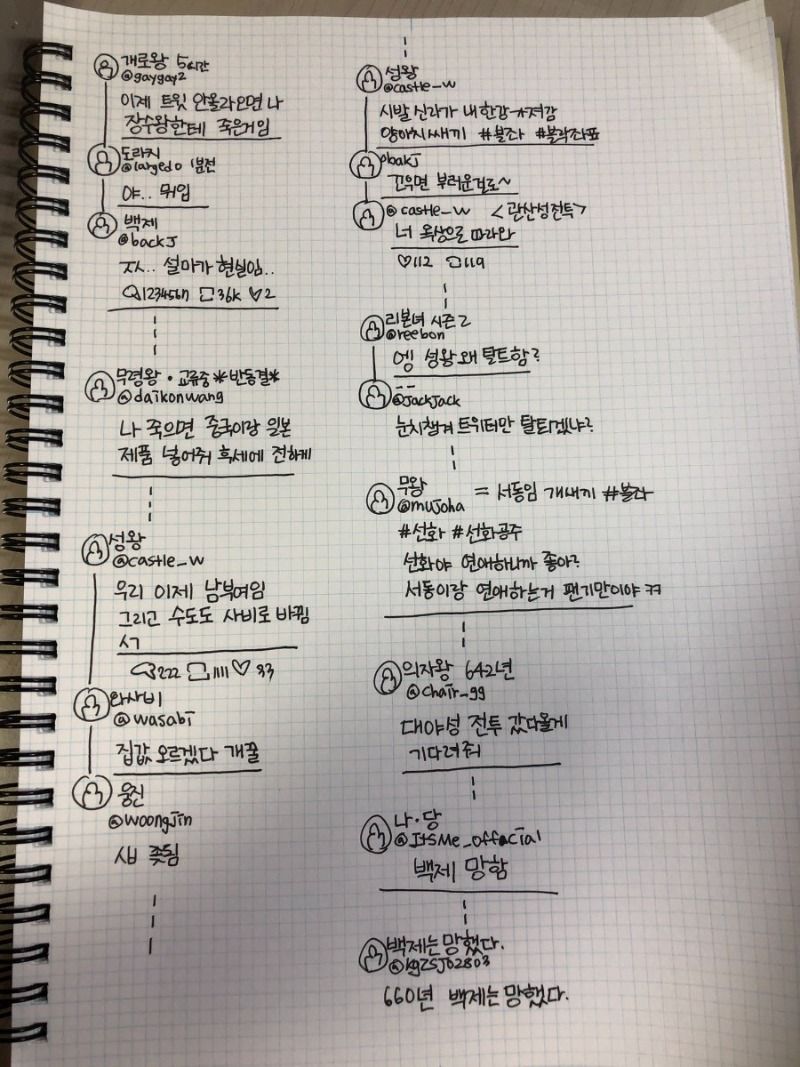 개로왕 5시간
@gaygay2
이제 트윗 안올라오면 나
장수왕한테 죽은거임
도라지
@largedo 1분전
야.. 뭐임
백제
@backJ
ㅈㅅ.. 설마가 현실임..
123456n 36k ♡2
무령왕 · 교류중 *반동결*
@daikonwang
나 죽으면 중국이랑 일본
제품 넣어줘 후세에 전하게
성왕
@castle_w
우리 이제 남부여임
그리고 수도도 사비로 바뀜
ㅅㄱ
222 1111 ♡33
와사비
@wasabi
집값 오르겠다 개꿀
웅진
@woongjin
시바 좆됨
성왕
@castle_w
시발 신라가 내 한강 ㅈ저감
양아치쌔끼 #불좌 #불락좌표
@bakJ
꼬우면 부러운걸로~
@castle_w <관산성전투>
너 옥상으로 따라와
♡112 119
리본녀 시즌2
@reebon
엥 성왕 왜 탈트함?
@JackJack
눈치챌겨 트위터만 탈퇴겠냐?
무왕 = 서동임 개새끼 #불좌
@mujoha
#선화 #선화공주
선화야 연애하니까 좋아?
서동이랑 연애하는거 팬기만이야 ㅋㅋ
의자왕 642년
@chair_gg
대야성 전투 갔다올게
기다려줘
나·당
@ItsMe_offacial
백제 망함
백제는 망했다.
@kgzsj02803
660년 백제는 망했다.